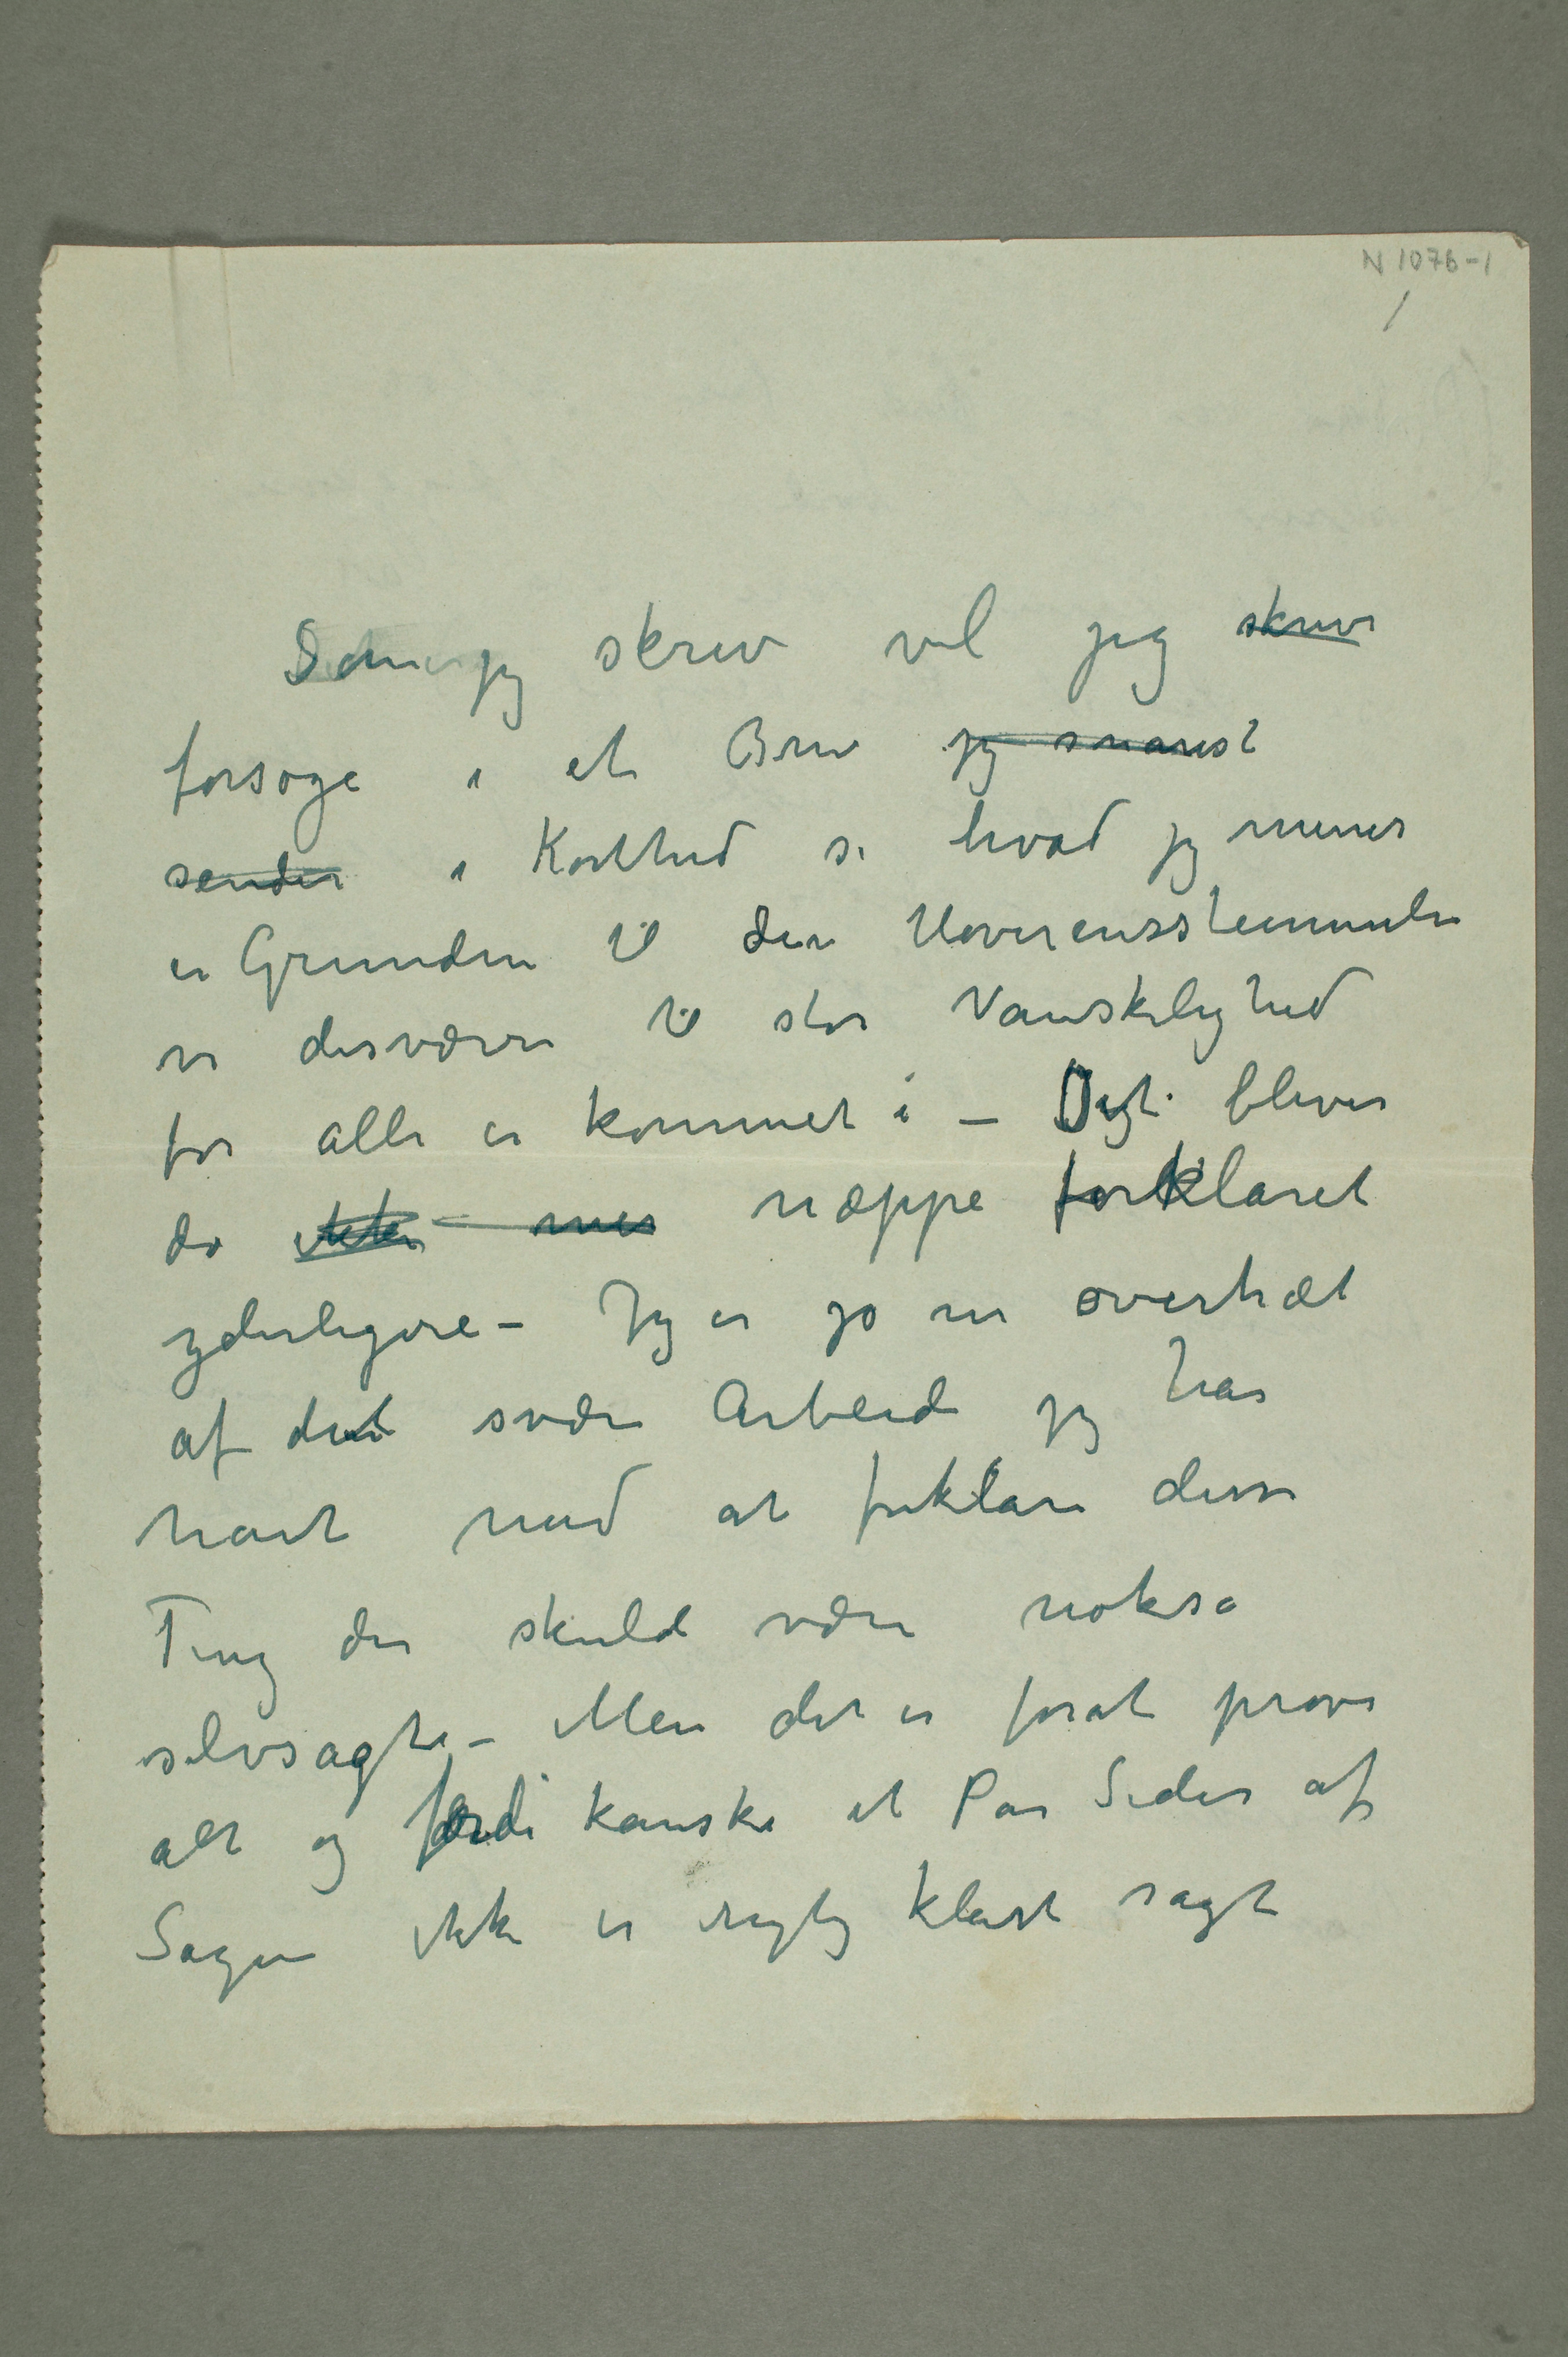 N 1076-1
/
Som jeg skrev vil jeg skrive
forsøge i et Brev jeg snarest
sender i Korthed si hvad jeg mener
er Grunden til den Uoverensstemmelse
vi desværre til stor Vanskelighed
for alle er kommet i – Det bliver
da ikke mer næppe forklaret
yderligere – Jeg er jo nu overtræt
af det svære Arbeide jeg har
havt med at forklare disse
Ting der skulde være noksa
selvsagte – Men det er forat prøve
alt og fordi kanske et Par Sider af
Sagen ikke er rigtig klart sagt